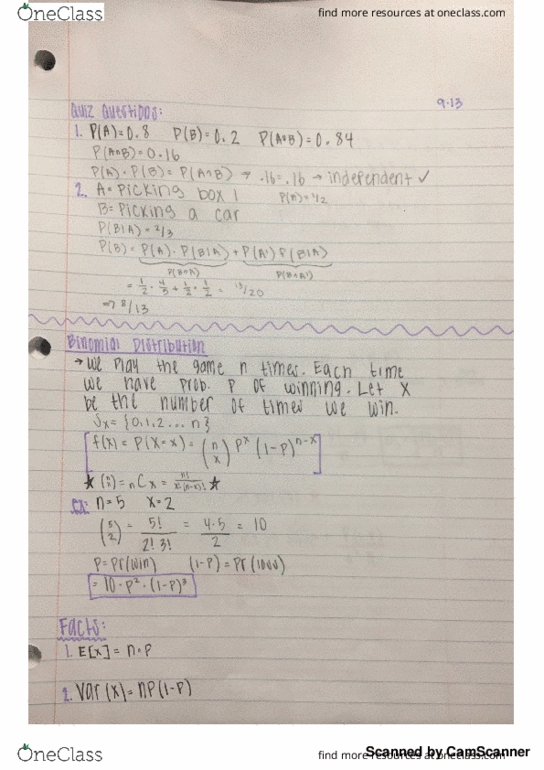 OneClass
find more resources at oneclass.com
9.13
Quiz Questions:
1. P(A)=0.8 P(B)=0.2 P(A∪B)=0.84
P(A∩B)=0.16
P(A)·P(B)=P(A∩B) → .16=.16 → independent ✓
2. A=Picking box 1 P(A)=1/2
B=Picking a car
P(B|A)=
P(B)= P(A)·P(B|A) + P(A')P(B|A)
P(B∩A) P(B∩A')
= 1/2 · 4/5 + 1/2 · 1/2 = 13/20
⇒ 8/13
Binomial Distribution
→ We play the game n times. Each time
we have prob. p of winning. Let X
be the number of times we win.
Sx = {0,1,2...n}
f(x) = P(X=x) = (n x) p^x (1-p)^n-x
★ = nCx = n!/x!(n-x)! ★
ex: n=5 x=2
(5 2) = 5!/2!3! = 4·5/2 = 10
p=Pr(win) (1-p)=Pr(loss)
= 10·p²·(1-p)³
Facts:
1. E[x] = n·p
2. Var(x)=np(1-p)
OneClass
find more resources at oneclass.com
Scanned by CamScanner